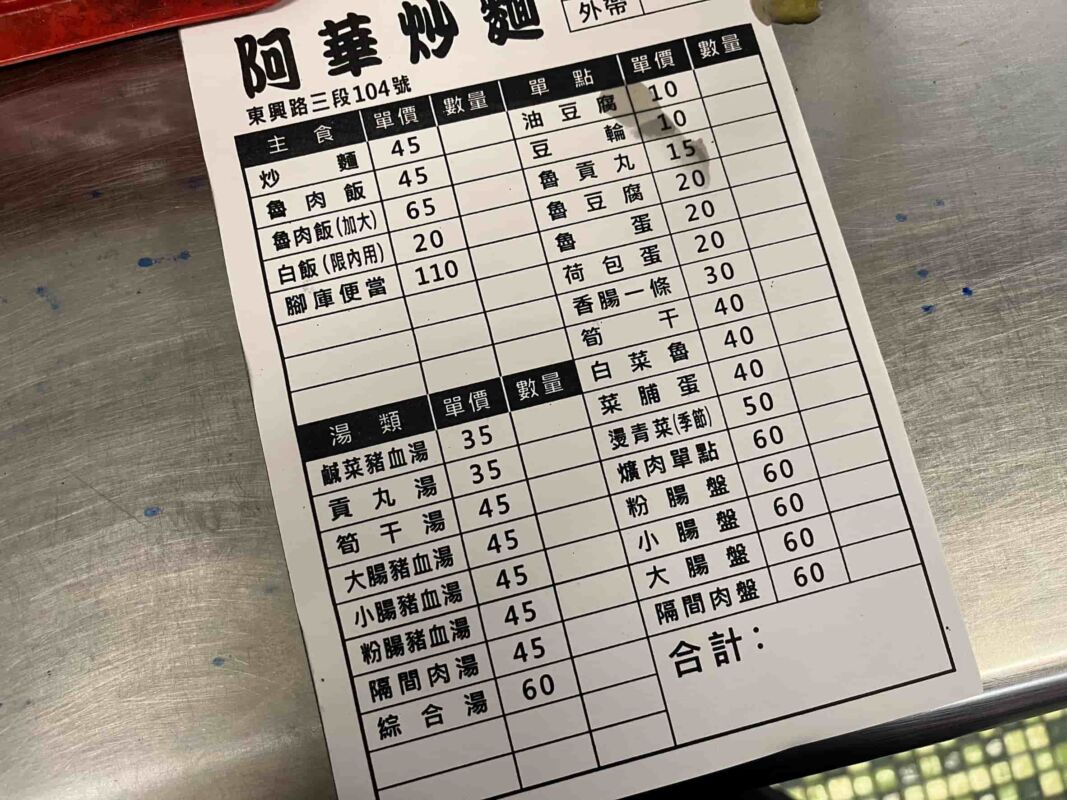 阿華炒麵
外帶
東興路三段104號
主食 單價 數量
炒麵 45
魯肉飯 45
魯肉飯(加大) 65
白飯(限內用) 20
腳庫便當 110
湯類 單價 數量
鹹菜豬血湯 35
貢丸湯 35
筍干湯 45
大腸豬血湯 45
小腸豬血湯 45
粉腸豬血湯 45
隔間肉湯 45
綜合湯 60
單點 單價 數量
油豆腐 10
豆輪 10
魯貢丸 15
魯豆腐 20
魯蛋 20
荷包蛋 20
香腸一條 30
筍干 40
白菜魯 40
菜脯蛋 40
燙青菜(季節) 50
爌肉單點 60
粉腸盤 60
小腸盤 60
大腸盤 60
隔間肉盤 60
合計：